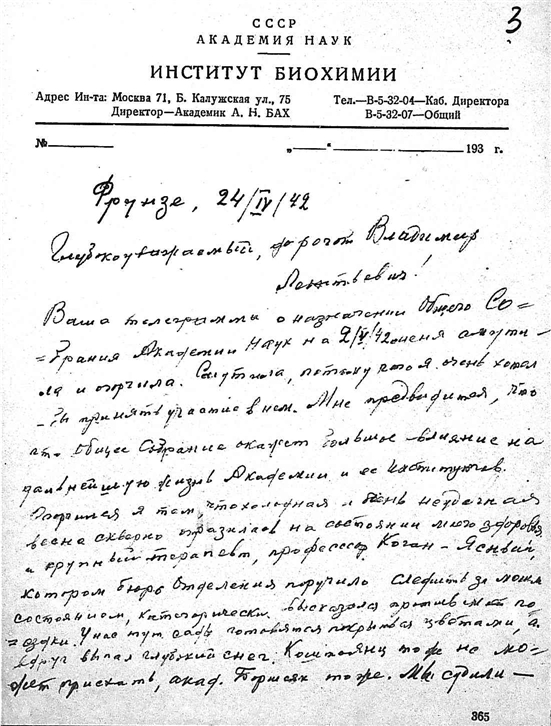 3
СССР
АКАДЕМИЯ НАУК
ИНСТИТУТ БИОХИМИИ
Адрес Ин-та: Москва 71, Б. Калужская ул., 75
Директор—Академик А. Н. БАХ
Тел.—В-5-32-04—Каб. Директора
В-5-32-07—Общий
№
„ “ 193 г.
Фрунзе, 24/IV/42
Глубокоуважаемый, дорогой Владимир
Леонтьевич!
Ваша телеграмма о назначении Общего Со=
=брания Академии Наук на 2/V/42 меня смути-
ла и огорчила. Смутила, потому что я очень хотел
-бы принять участие в нем. Мне предвидится, что
это Общее Собрание окажет большое влияние на
дальнейшую жизнь Академии и ее Институтов.
Огорчился я тем, что холодная и очень неудачная
весна скверно отразилась на состоянии моего здоровья,
и крупный терапевт, профессор Коган-Ясный,
котором бюро Отделения поручило следить за моим
состоянием, категорически высказался против моей по=
=ездки. У нас тут сады готовятся покрыться цветами, а
вдруг выпал глубокий снег. Коштоянц тоже не мо-
жет приехать, акад. Борисяк тоже. Мы
365